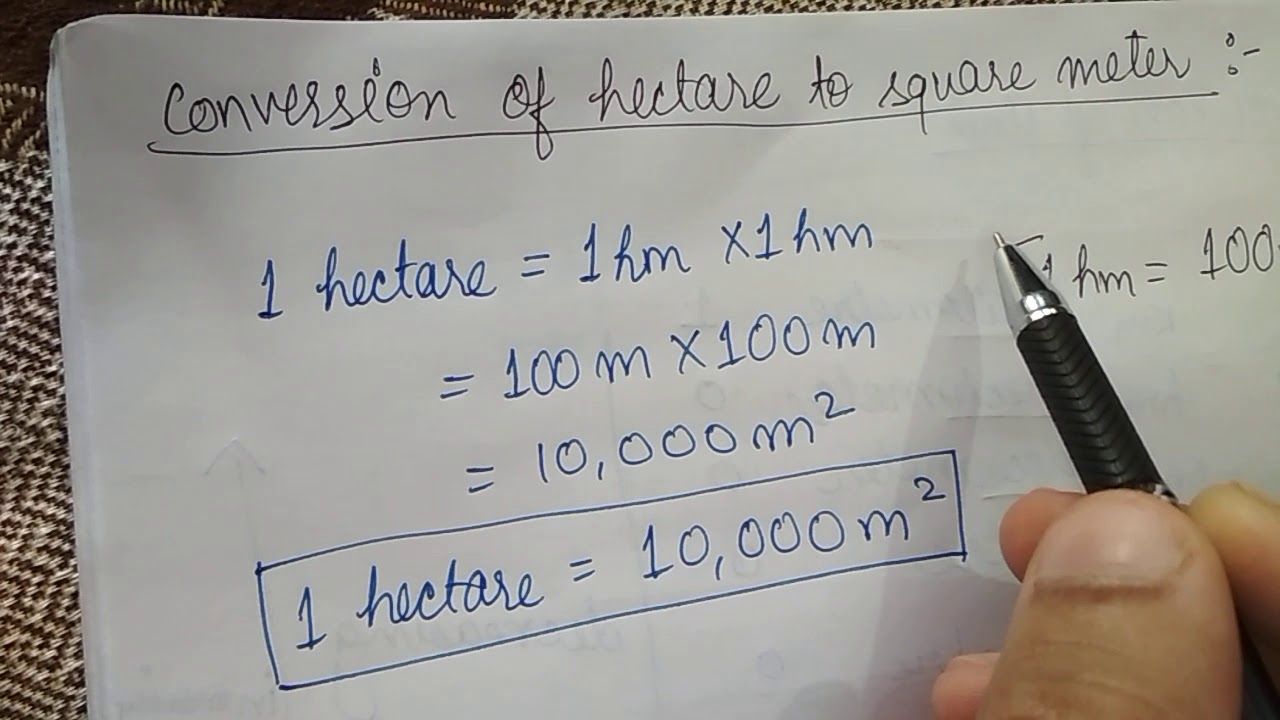 Conversion of hectare to square meter :-
1 hectare = 1 hm x 1 hm
1 hm = 100
= 100 m x 100 m
= 10,000 m²
1 hectare = 10,000 m²